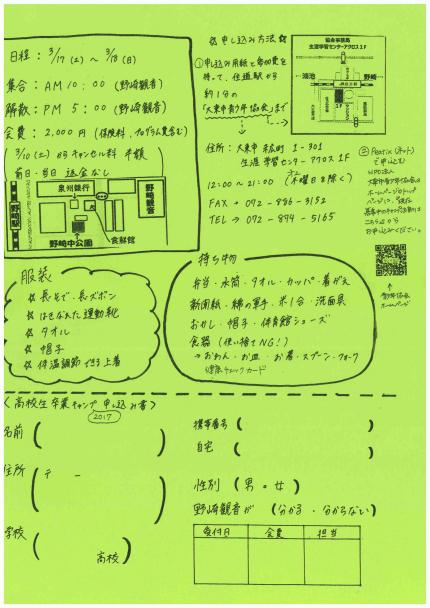 日程：3/17(土)～3/18(日)
集合：AM10：00(野崎観音)
解散：PM 5：00(野崎観音)
会費：2,000円(保険料、プログラム費含む)
3/10(土)からキャンセル料 半額
前日・当日 返金なし
泉州銀行
野崎駅
野崎観音
食鮮館
野崎中公園
☆申し込み方法☆
①申し込み用紙と参加費を
持って、住道駅から
約1分の
「大東青少年協会」まで
協会事務局
生涯学習センターアクロス1F
鴻池
野崎
住所：大東市末広町1-301
生涯学習センターアクロス1F
12:00～21:00(木曜日を除く)
FAX→072-896-3152
TEL→072-874-5165
②Peatix(ネット)
で申込む
NPO法人
大東青少年協会の
ホームページのトップ
ページに、現在
募集中のキャンプのお知らせ
こちらから
お申込みください。
↑
青少年協会
ホームページ
服装
☆長そで・長ズボン
☆はきなれた運動靴
☆タオル
☆帽子
☆体温調節できる上着
持ち物
弁当・水筒・タオル・カッパ・着がえ
新聞紙・綿の軍手・米1合・洗面具
おかし・帽子・体育館シューズ
食器(使い捨てNG！)
→おわん・お皿・お箸・スプーン・フォーク
健康チェックカード
〈高校生卒業キャンプ 申し込み書〉
2017
名前( )
住所(〒 - )
学校( 高校)
携帯番号( )
自宅( )
性別(男・女)
野崎観音が(分かる・分からない)
受付日 会費 担当